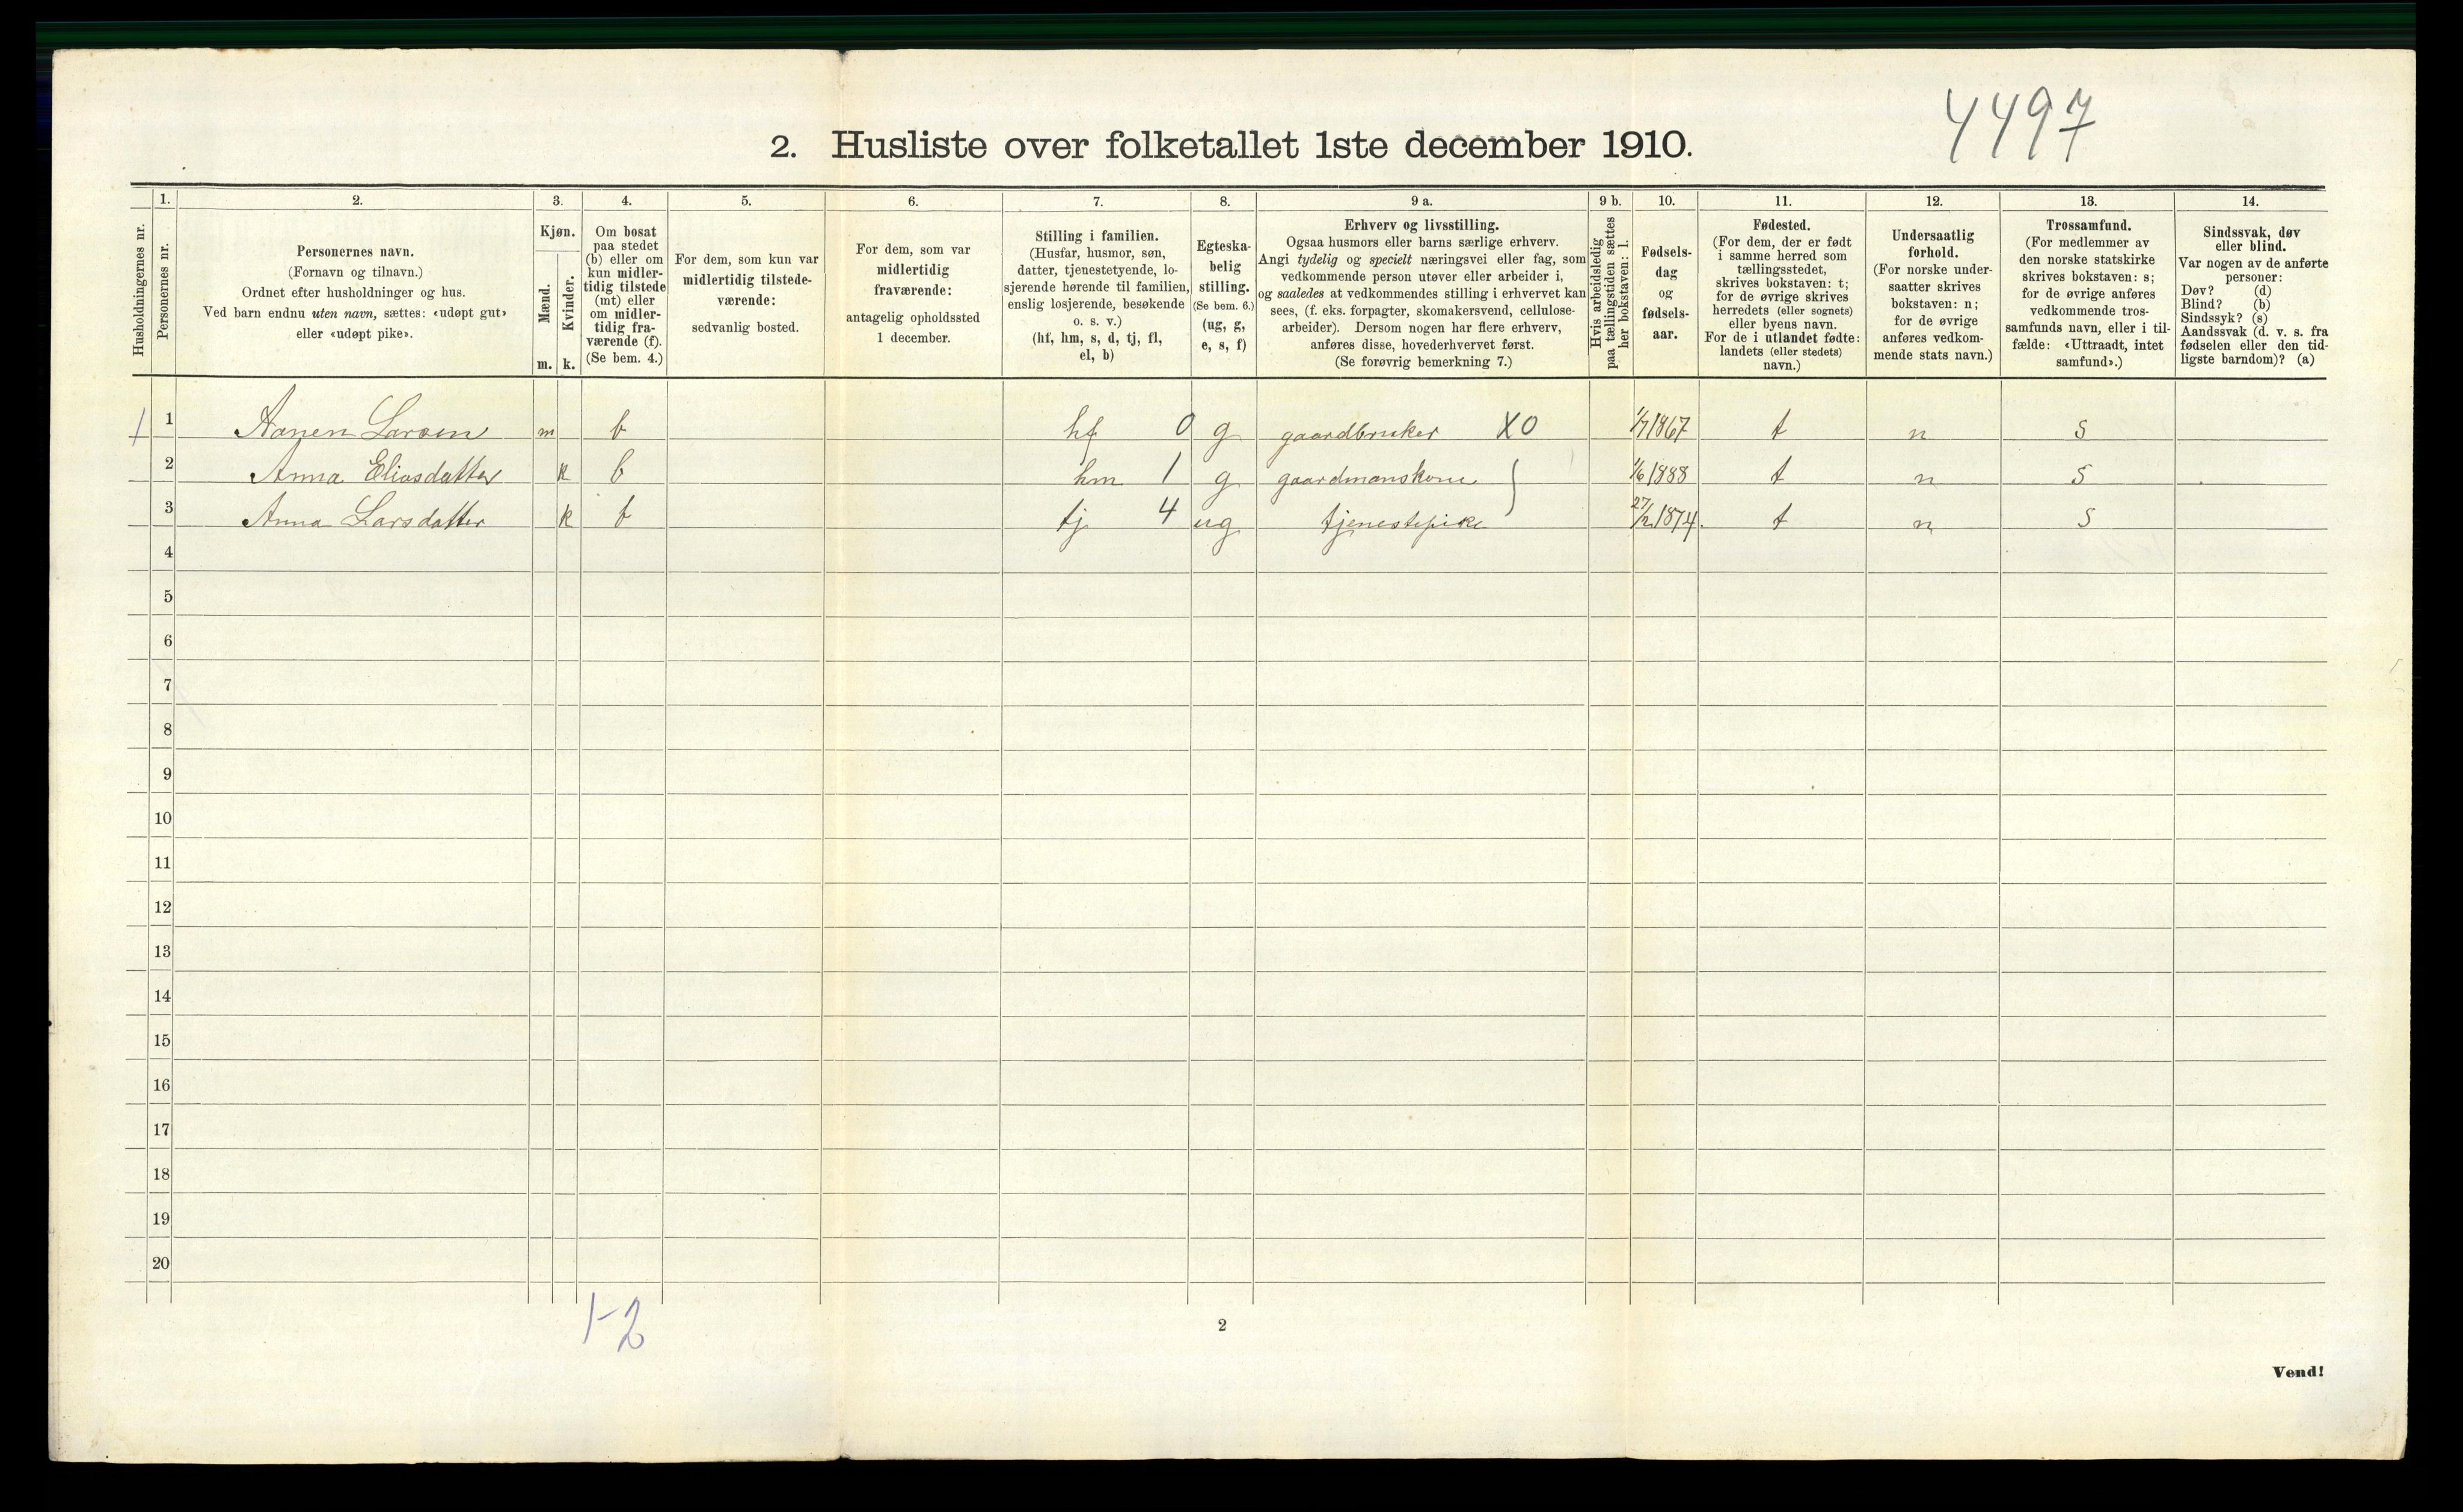 4497
2. Husliste over folketallet 1ste december 1910.
Husholdningernes nr.
1.
Personernes nr.
2.
Personernes navn.
(Fornavn og tilnavn.)
Ordnet efter husholdninger og hus.
Ved barn endnu uten navn, sættes: «udøpt gut»
eller «udøpt pike».
3.
Kjøn.
Mænd.
Kvinder.
m. k.
4.
Om bosat
paa stedet
(b) eller om
kun midler-
tidig tilstede
(mt) eller
om midler-
tidig fra-
værende (f).
(Se bem. 4.)
5.
For dem, som kun var
midlertidig tilstede-
værende:
sedvanlig bosted.
6.
For dem, som var
midlertidig
fraværende:
antagelig opholdssted
1 december.
7.
Stilling i familien.
(Husfar, husmor, søn,
datter, tjenestetyende, lo-
sjerende hørende til familien,
enslig losjerende, besøkende
o. s. v.)
(hf, hm, s, d, tj, fl,
el, b)
8.
Egteska-
belig
stilling.
(Se bem. 6.)
(ug, g,
e, s, f)
9 a.
Erhverv og livsstilling.
Ogsaa husmors eller barns særlige erhverv.
Angi tydelig og specielt næringsvei eller fag, som
vedkommende person utøver eller arbeider i,
og saaledes at vedkommendes stilling i erhvervet kan
sees, (f. eks. forpagter, skomakersvend, cellulose-
arbeider). Dersom nogen har flere erhverv,
anføres disse, hovederhvervet først.
(Se forøvrig bemerkning 7.)
9 b.
Hvis arbeidsledig
paa tællingstiden sættes
her bokstaven: l.
10.
Fødsels-
dag
og
fødsels-
aar.
11.
Fødested.
(For dem, der er født
i samme herred som
tællingsstedet,
skrives bokstaven: t;
for de øvrige skrives
herredets (eller sognets)
eller byens navn.
For de i utlandet fødte:
landets (eller stedets)
navn.)
12.
Undersaatlig
forhold.
(For norske under-
saatter skrives
bokstaven: n;
for de øvrige
anføres vedkom-
mende stats navn.)
13.
Trossamfund.
(For medlemmer av
den norske statskirke
skrives bokstaven: s;
for de øvrige anføres
vedkommende tros-
samfunds navn, eller i til-
fælde: «Uttraadt, intet
samfund».)
14.
Sindssvak, døv
eller blind.
Var nogen av de anførte
personer:
Døv? (d)
Blind? (b)
Sindssyk? (s)
Aandssvak (d. v. s. fra
fødselen eller den tid-
ligste barndom)? (a)
1 1 Aanen Larsen m b hf 0 g gaardbruker X0 1/7 1867 t n s
2 Anna Eliasdatter k b hm 1 g gaardmanskone 1/6 1888 t n s
3 Anna Larsdatter k b tj 4 ug tjenestepike 27/2 1874. t n s
4
5
6
7
8
9
10
11
12
13
14
15
16
17
18
19
20
1-2
2
Vend!